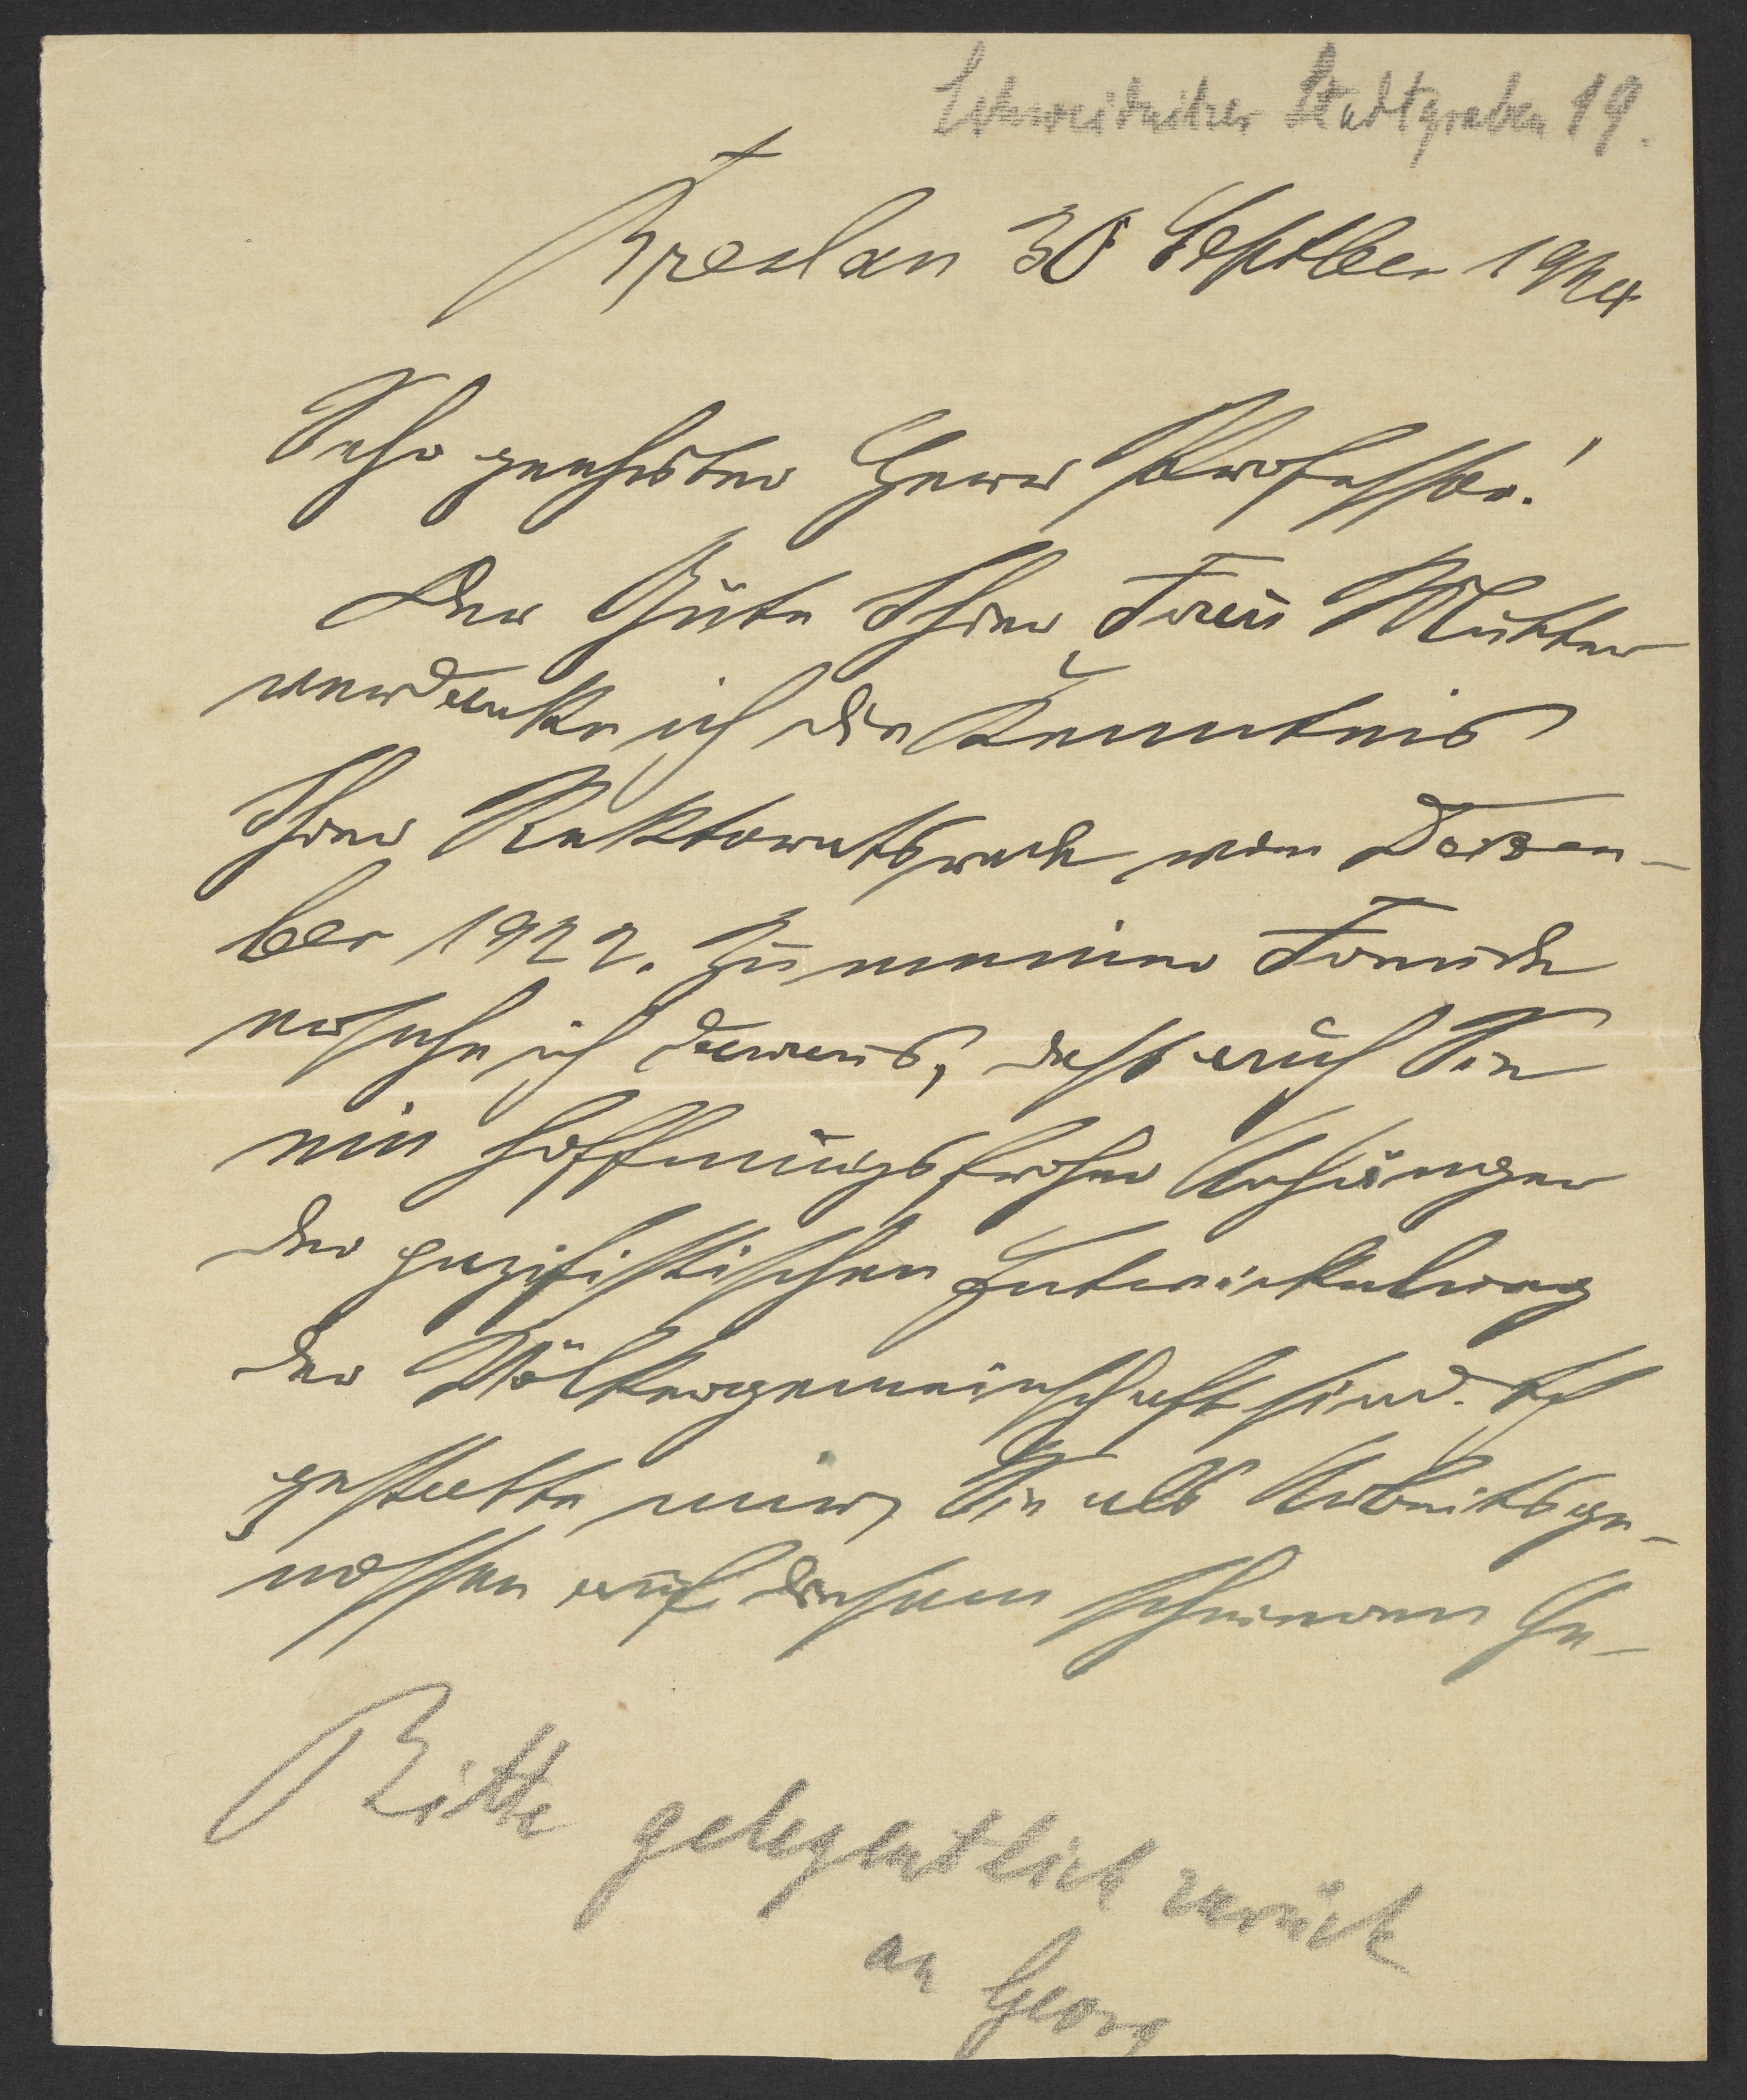 Schweidnitzer Stadtgraben 19.
Breslau 30 Septber 1924
Sehr geehrter Herr Professor!
Der Güte Ihrer Frau Mutter
verdanke ich die Kenntnis
Ihrer Rektoratsrede vom Dezem-
ber 1922. Zu meiner Freude
ersehe ich daraus, dass auch Sie
ein hoffnungsfroher Anhänger
der pazifistischen Entwickelung
der Völkergemeinschaft sind. Ich
gestatte mir, Sie als Arbeitsge-
nossen auf diesem schweren Ge-
Bitte gelegentlich zurück
an Georg